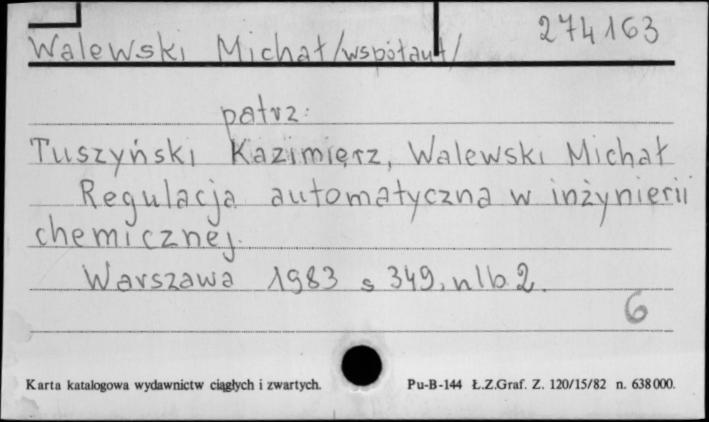 274163
Walewski Michał /współaut/
patrz:
Tuszyński Kazimierz, Walewski Michał
Regulacja automatyczna w inżynierii
chemicznej.
Warszawa 1983 s 349, nlb. 2.
6
Karta katalogowa wydawnictw ciągłych i zwartych. Pu-B-144 Ł.Z.Graf. Z. 120/15/82 n. 638000.